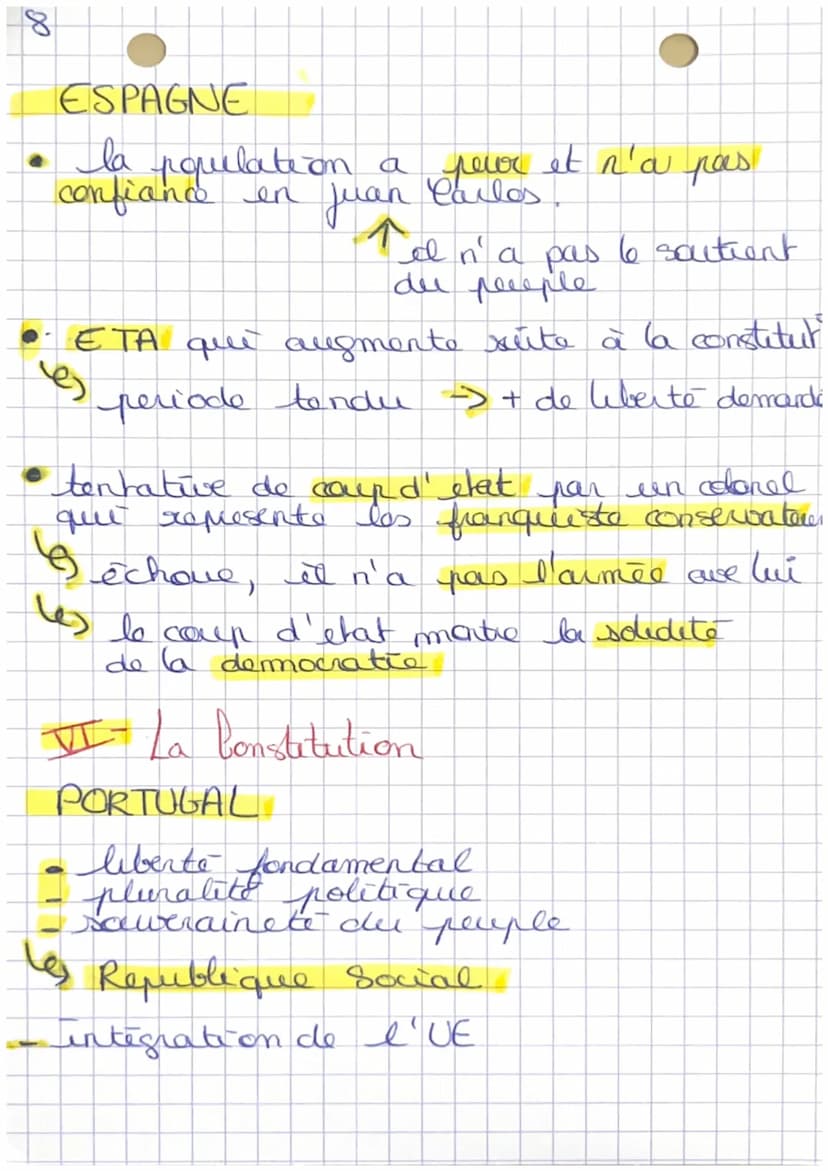 8
ESPAGNE
• la population a peur et n'a pas
confiance en juan Carlos.
↑ il n'a pas le soutient
du peuple
• ETA qui augmente suite à la constitut°
↳ periode tendu → + de liberté demandé
• tentative de coup d'etat par un colonel
qui represente les franquiste conservatoire
↳ échoue, il n'a pas l'armée ave lui
↳ le coup d'etat montre la solidité
de la democratie
VI - La Constitution
PORTUGAL
- liberté fondamental
- pluralité politique
- souveraineté du peuple
↳ Republique Social
- intégration de l'UE